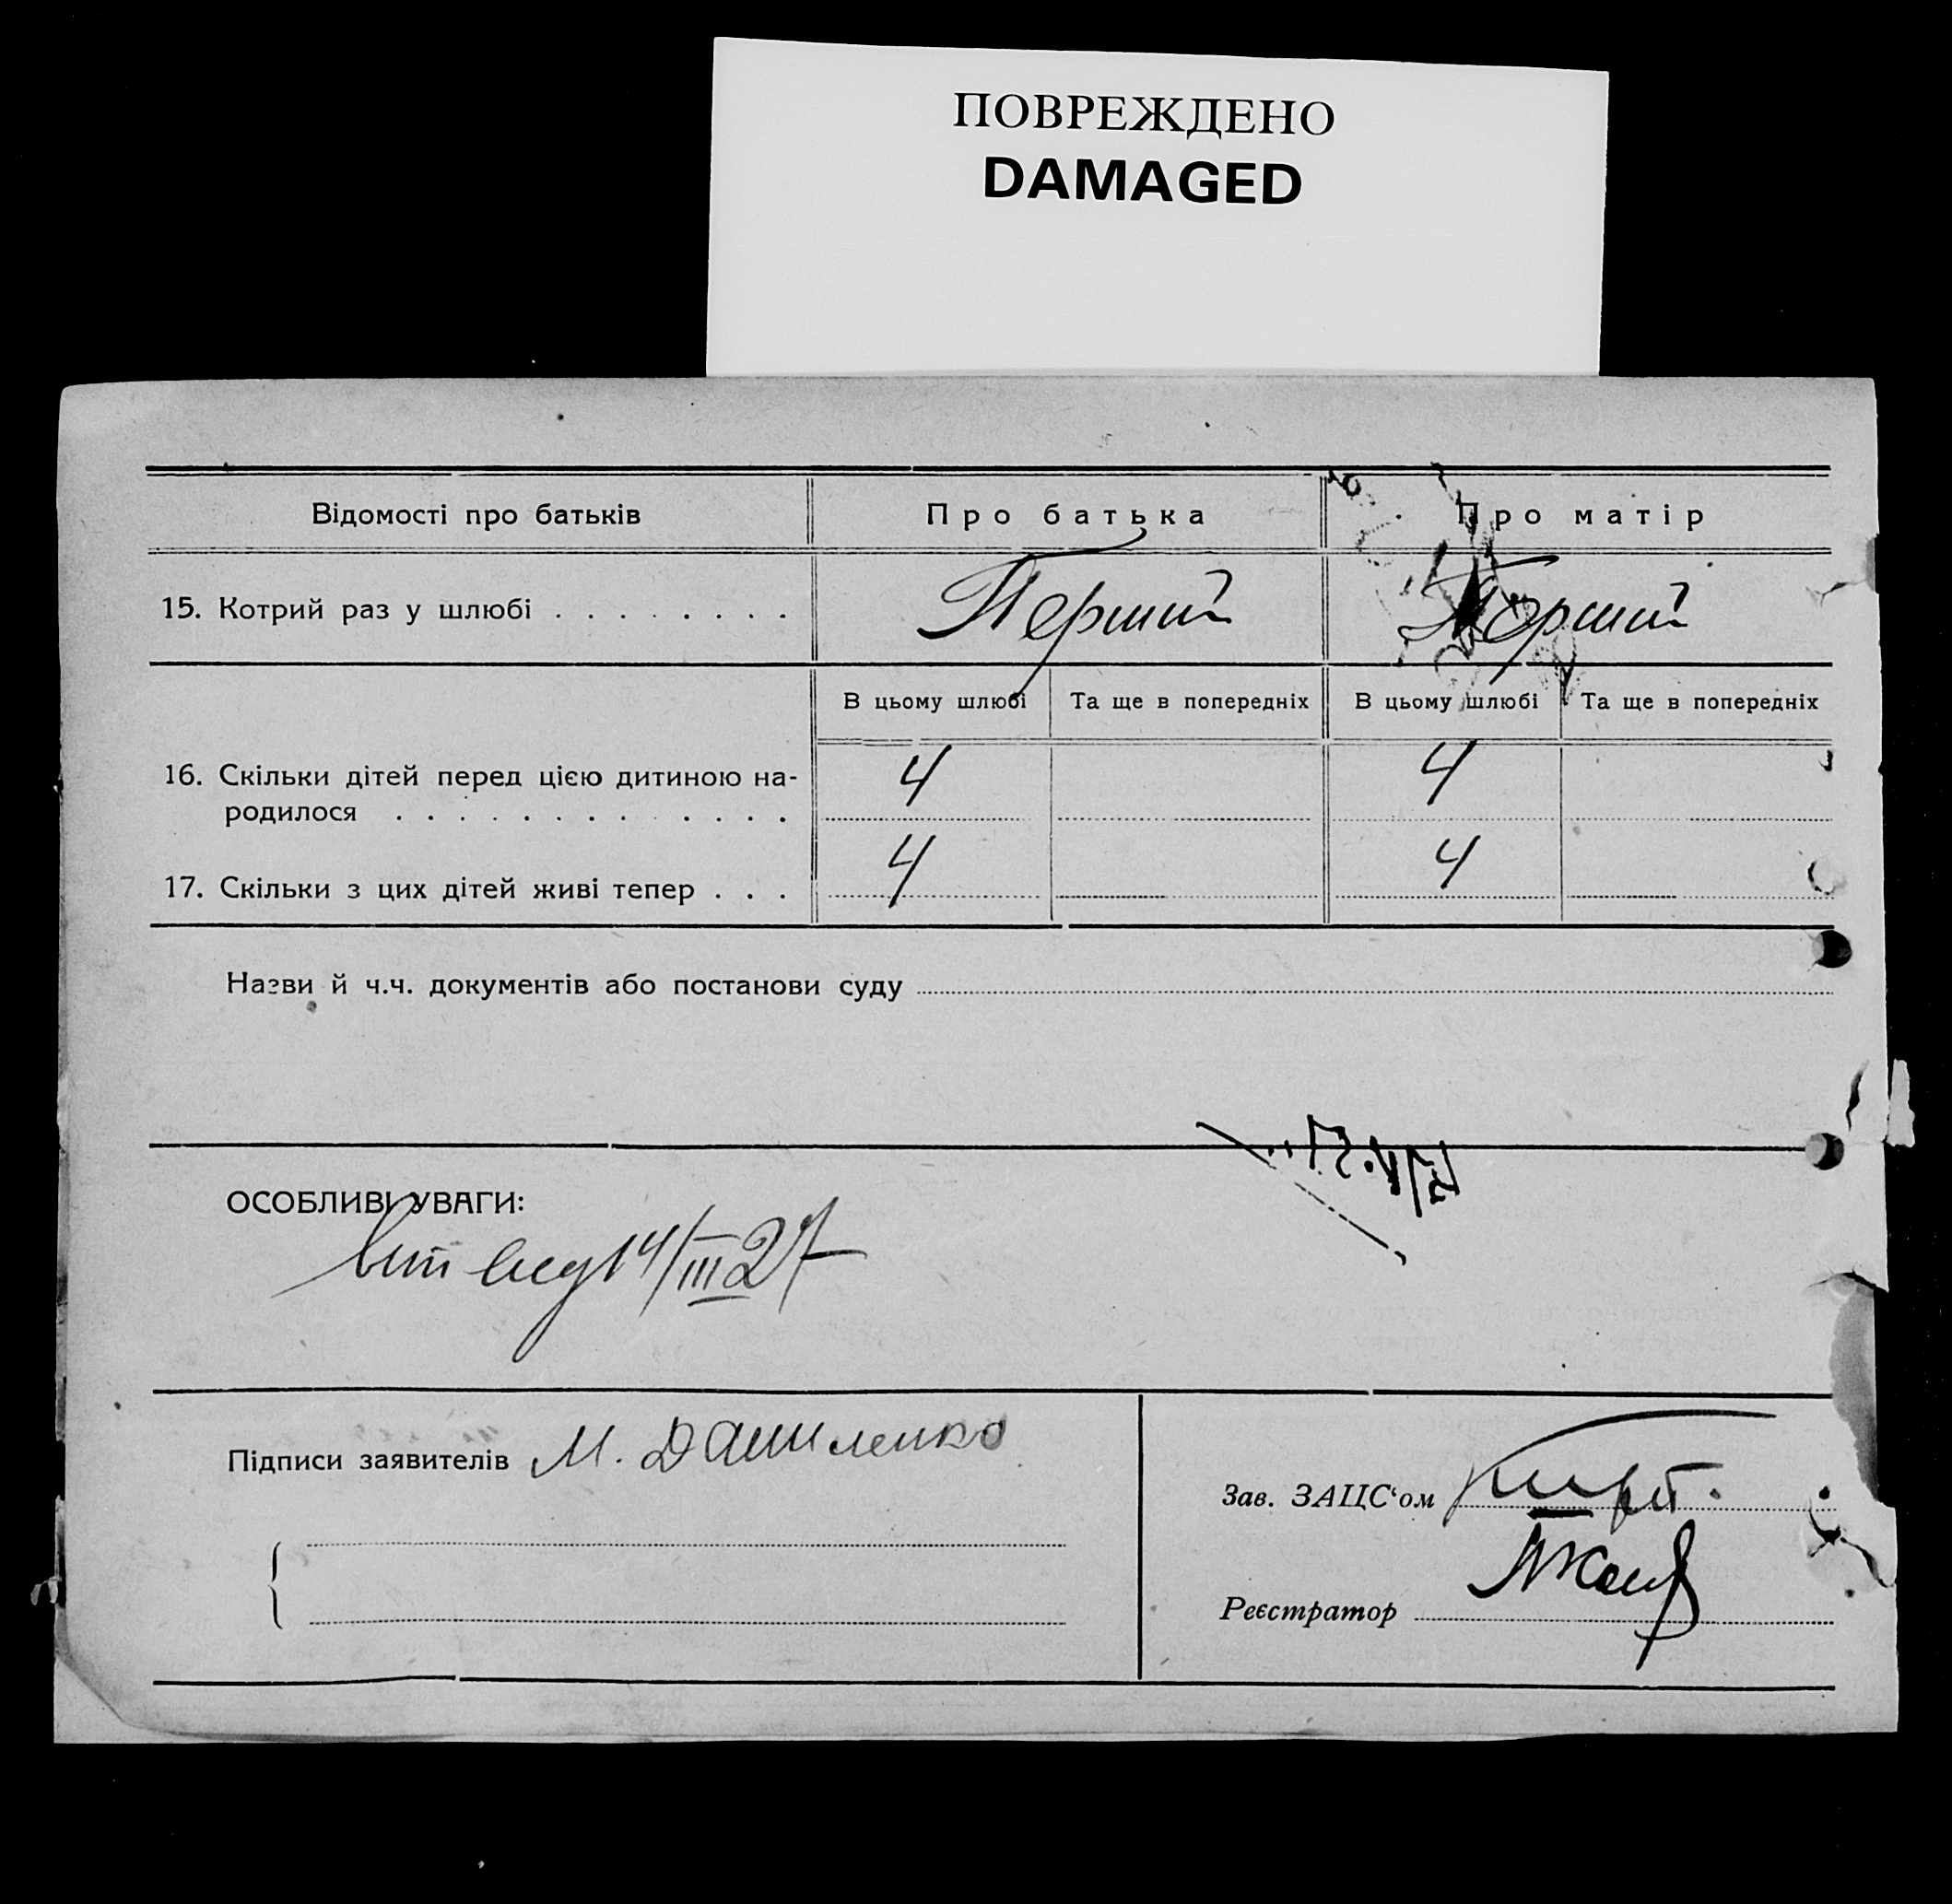 ПОВРЕЖДЕНО
DAMAGED
Відомості про батьків
Про батька
Про матір
15. Котрий раз у шлюбі . . . . . . . .
Перший
Перший
В цьому шлюбі
Та ще в попередніх
В цьому шлюбі
Та ще в попередніх
16. Скільки дітей перед цією дитиною на-
родилося . . . . . . . . . . . . .
4
4
17. Скільки з цих дітей живі тепер . . .
4
4
Назви й ч.ч. документів або постанови суду
ОСОБЛИВІ УВАГИ:
14/III 27
Підписи заявителів М. Даниленко
Зав. ЗАЦС‘ом
Реєстратор